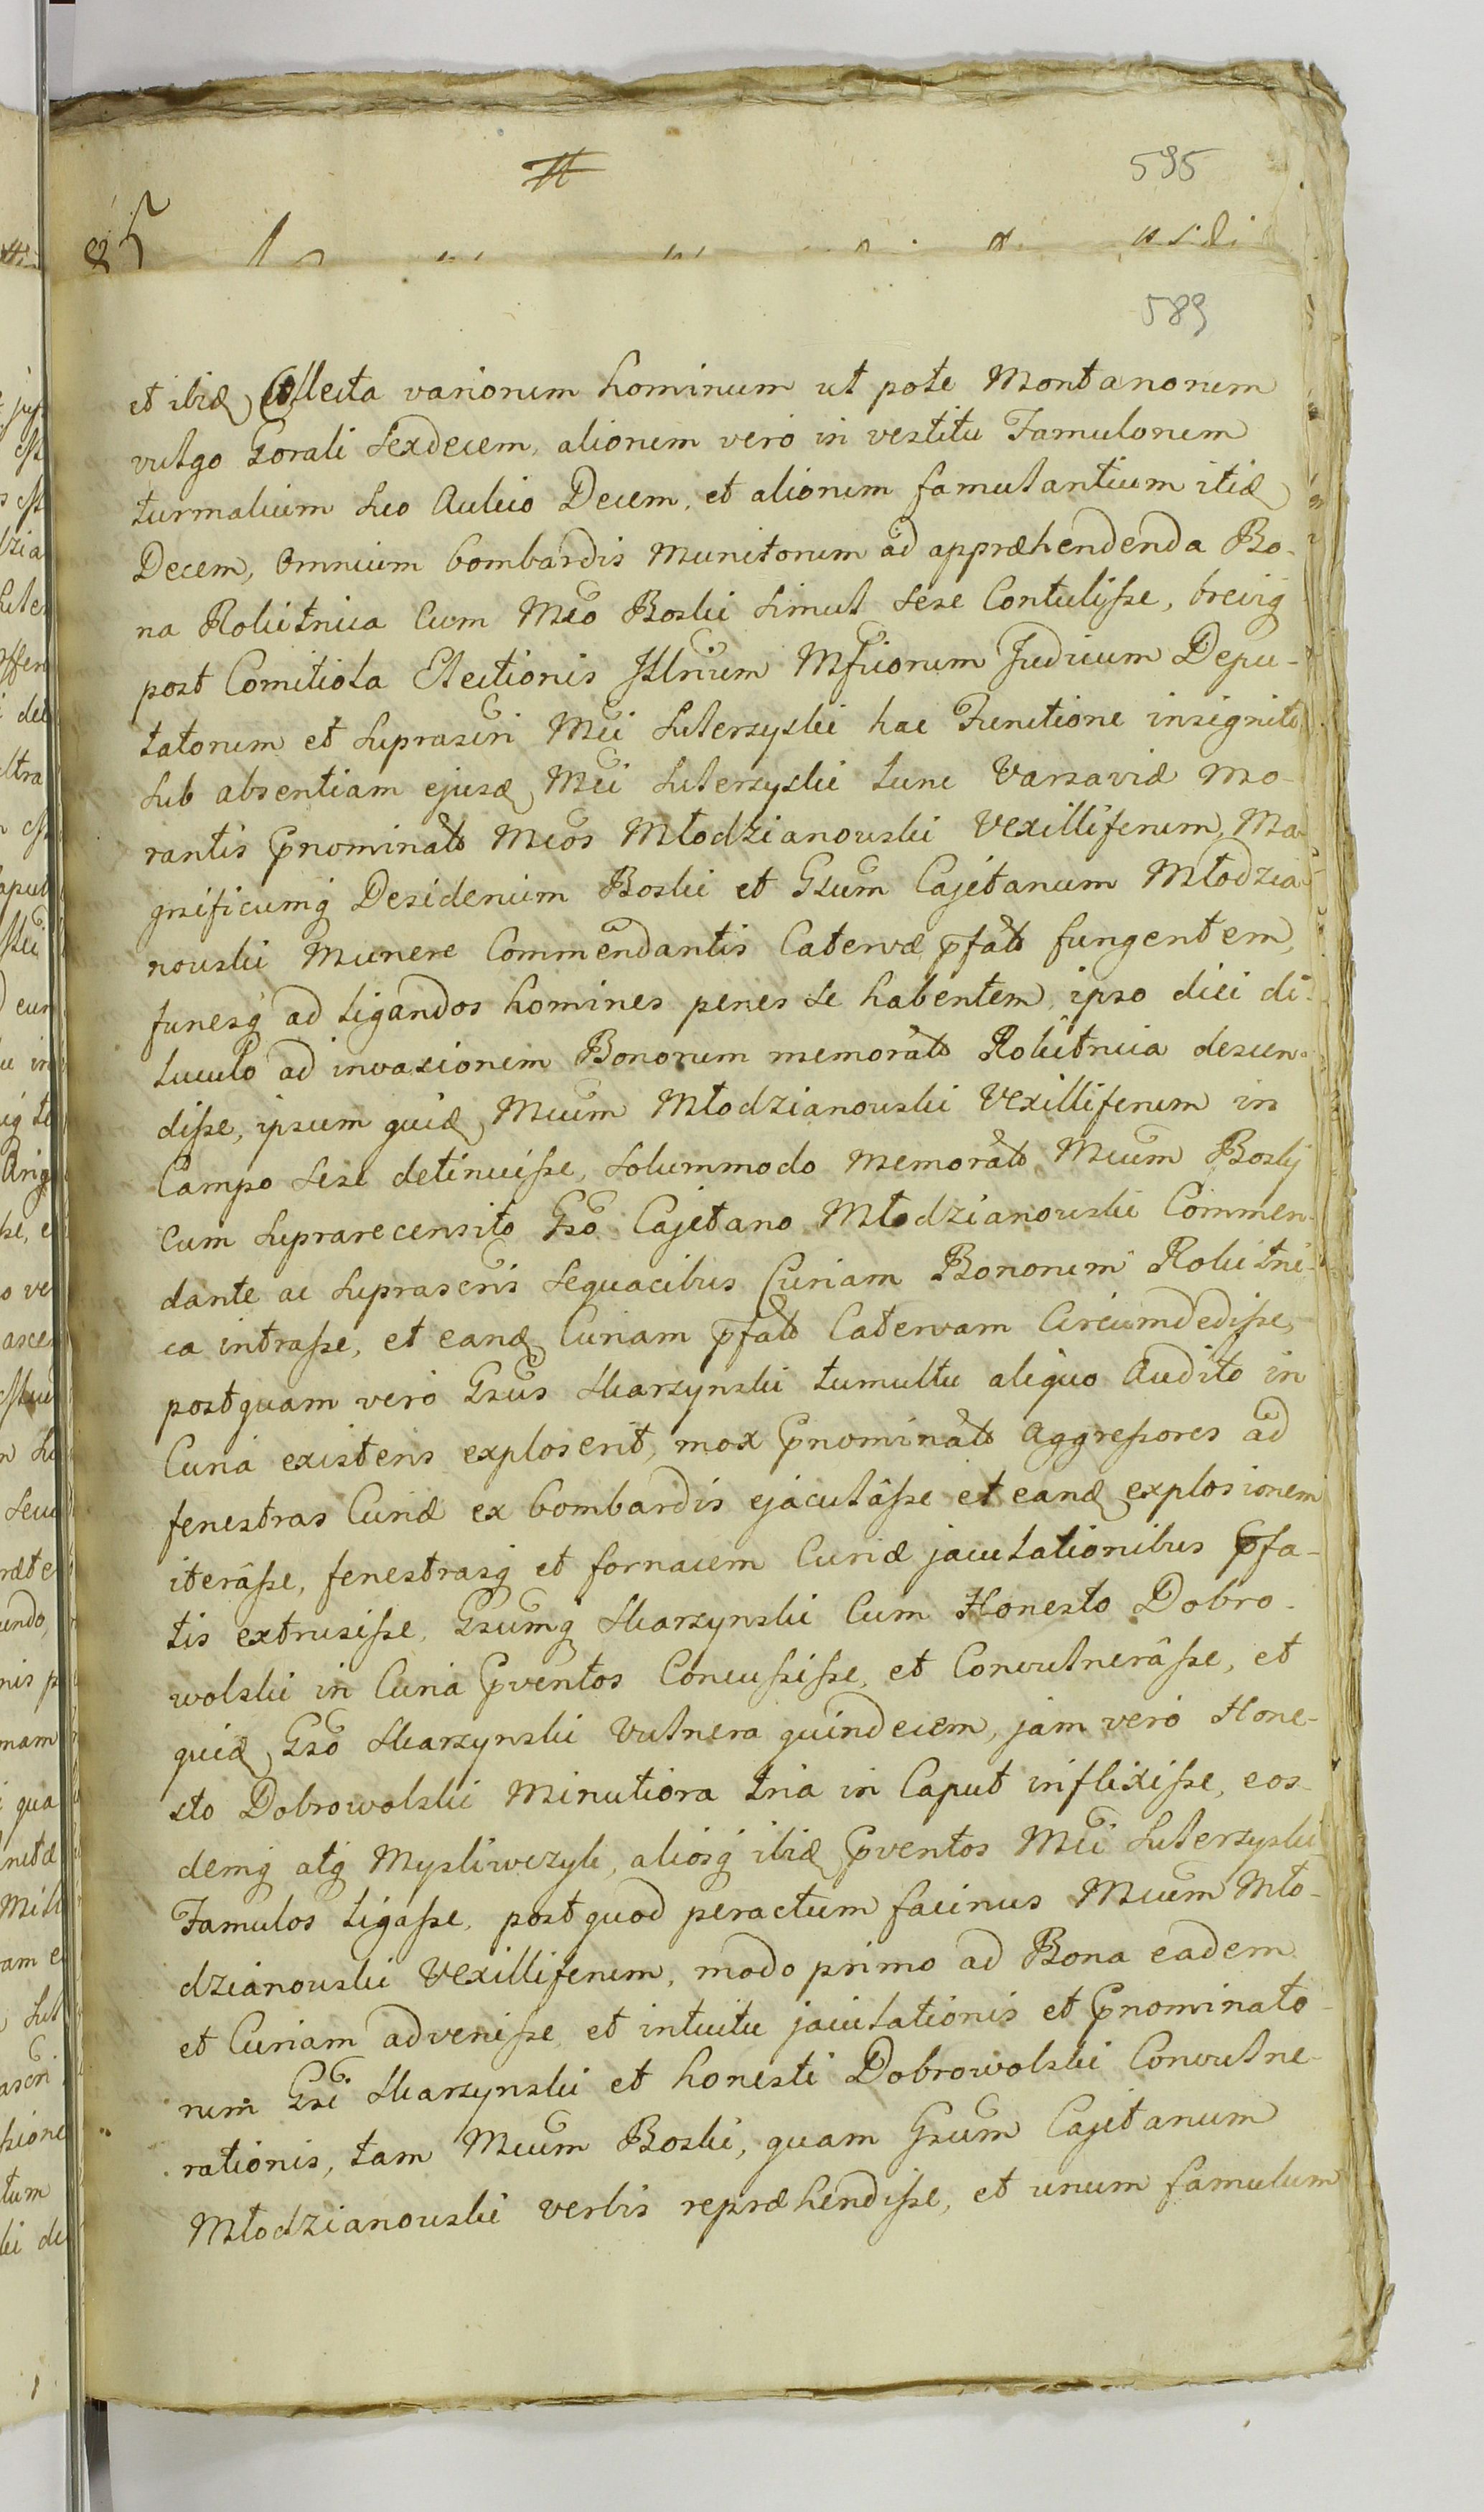 595
589
et ibid Collecta variorum hominum ut pote Montanorum
vulgo Gorali Sexdecem, aliorum vero in vestitu Famulorum
turmalium seo Aulico Decem, et aliorum famulantium itid
Decem, Omnium bombardis Munitorum ad appræhendenda Bo-
na Rokitnica Cum Mco Boski simul sese Contulisse, breviq
post Comitiola Electionis Illrium Mficorum Judicum Depu-
tatorum et suprascri Mci Suterzyski hac Functione insigniti
sub absentiam ejusd Mci Suterzyski tunc Varsaviæ mo-
rantis pnominato Mcos Młodzianowski Vexilliferum, Ma-
gnificumq Desiderium Boski et Gsum Cajetanum Młodzia-
nowski Munere Commendantis Catervæ pfato fungentem,
funesq ad ligandos homines penes se habentem, ipso diei di-
luculo ad invasionem Bonorum memorato Rokitnica descen-
disse, ipsum quid Mcum Młodzianowski Vexilliferum in
Campo sese detinuisse, solummodo memorato Mcum Boskj
Cum suprarecensito Gso Cajetano Młodzianowski Commen-
dante ac suprascris sequacibus Curiam Bonorum Rokitni-
ca intrasse, et eand Curiam pfato Catervam Circumdedisse,
postquam vero Gsus Skarzynski tumultu aliquo Audito in
Curia existens exploserit, mox pnominato Aggressores ad
fenestras Curiæ ex bombardis ejaculâsse et eand explosionem
iterâsse, fenestrasq et fornacem Curiæ jaculationibus pfa-
tis extrusisse, Gsumq Skarzynski Cum Honesto Dobro-
wolski in Curia pventos Concussisse, et Convulnerâsse, et
quid Gso Skarzynski Vulnera quindecem, jam vero Hone-
sto Dobrowolski Minutiora tria in Caput inflixisse, eos-
demq atq Mysliwczyk, aliosq ibid pventos Mci Suterzyski
Famulos ligasse, post quod peractum facinus Mcum Mło-
dzianowski Vexilliferum, modo primo ad Bona eadem
et Curiam advenisse et intuitu jaculationis et pnominato-
rum Gsi Skarzynski et honesti Dobrowolski Convulne-
rationis, tam Mcum Boski, quam Gsum Cajetanum
Młodzianowski verbis repræhendisse, et unum famulum